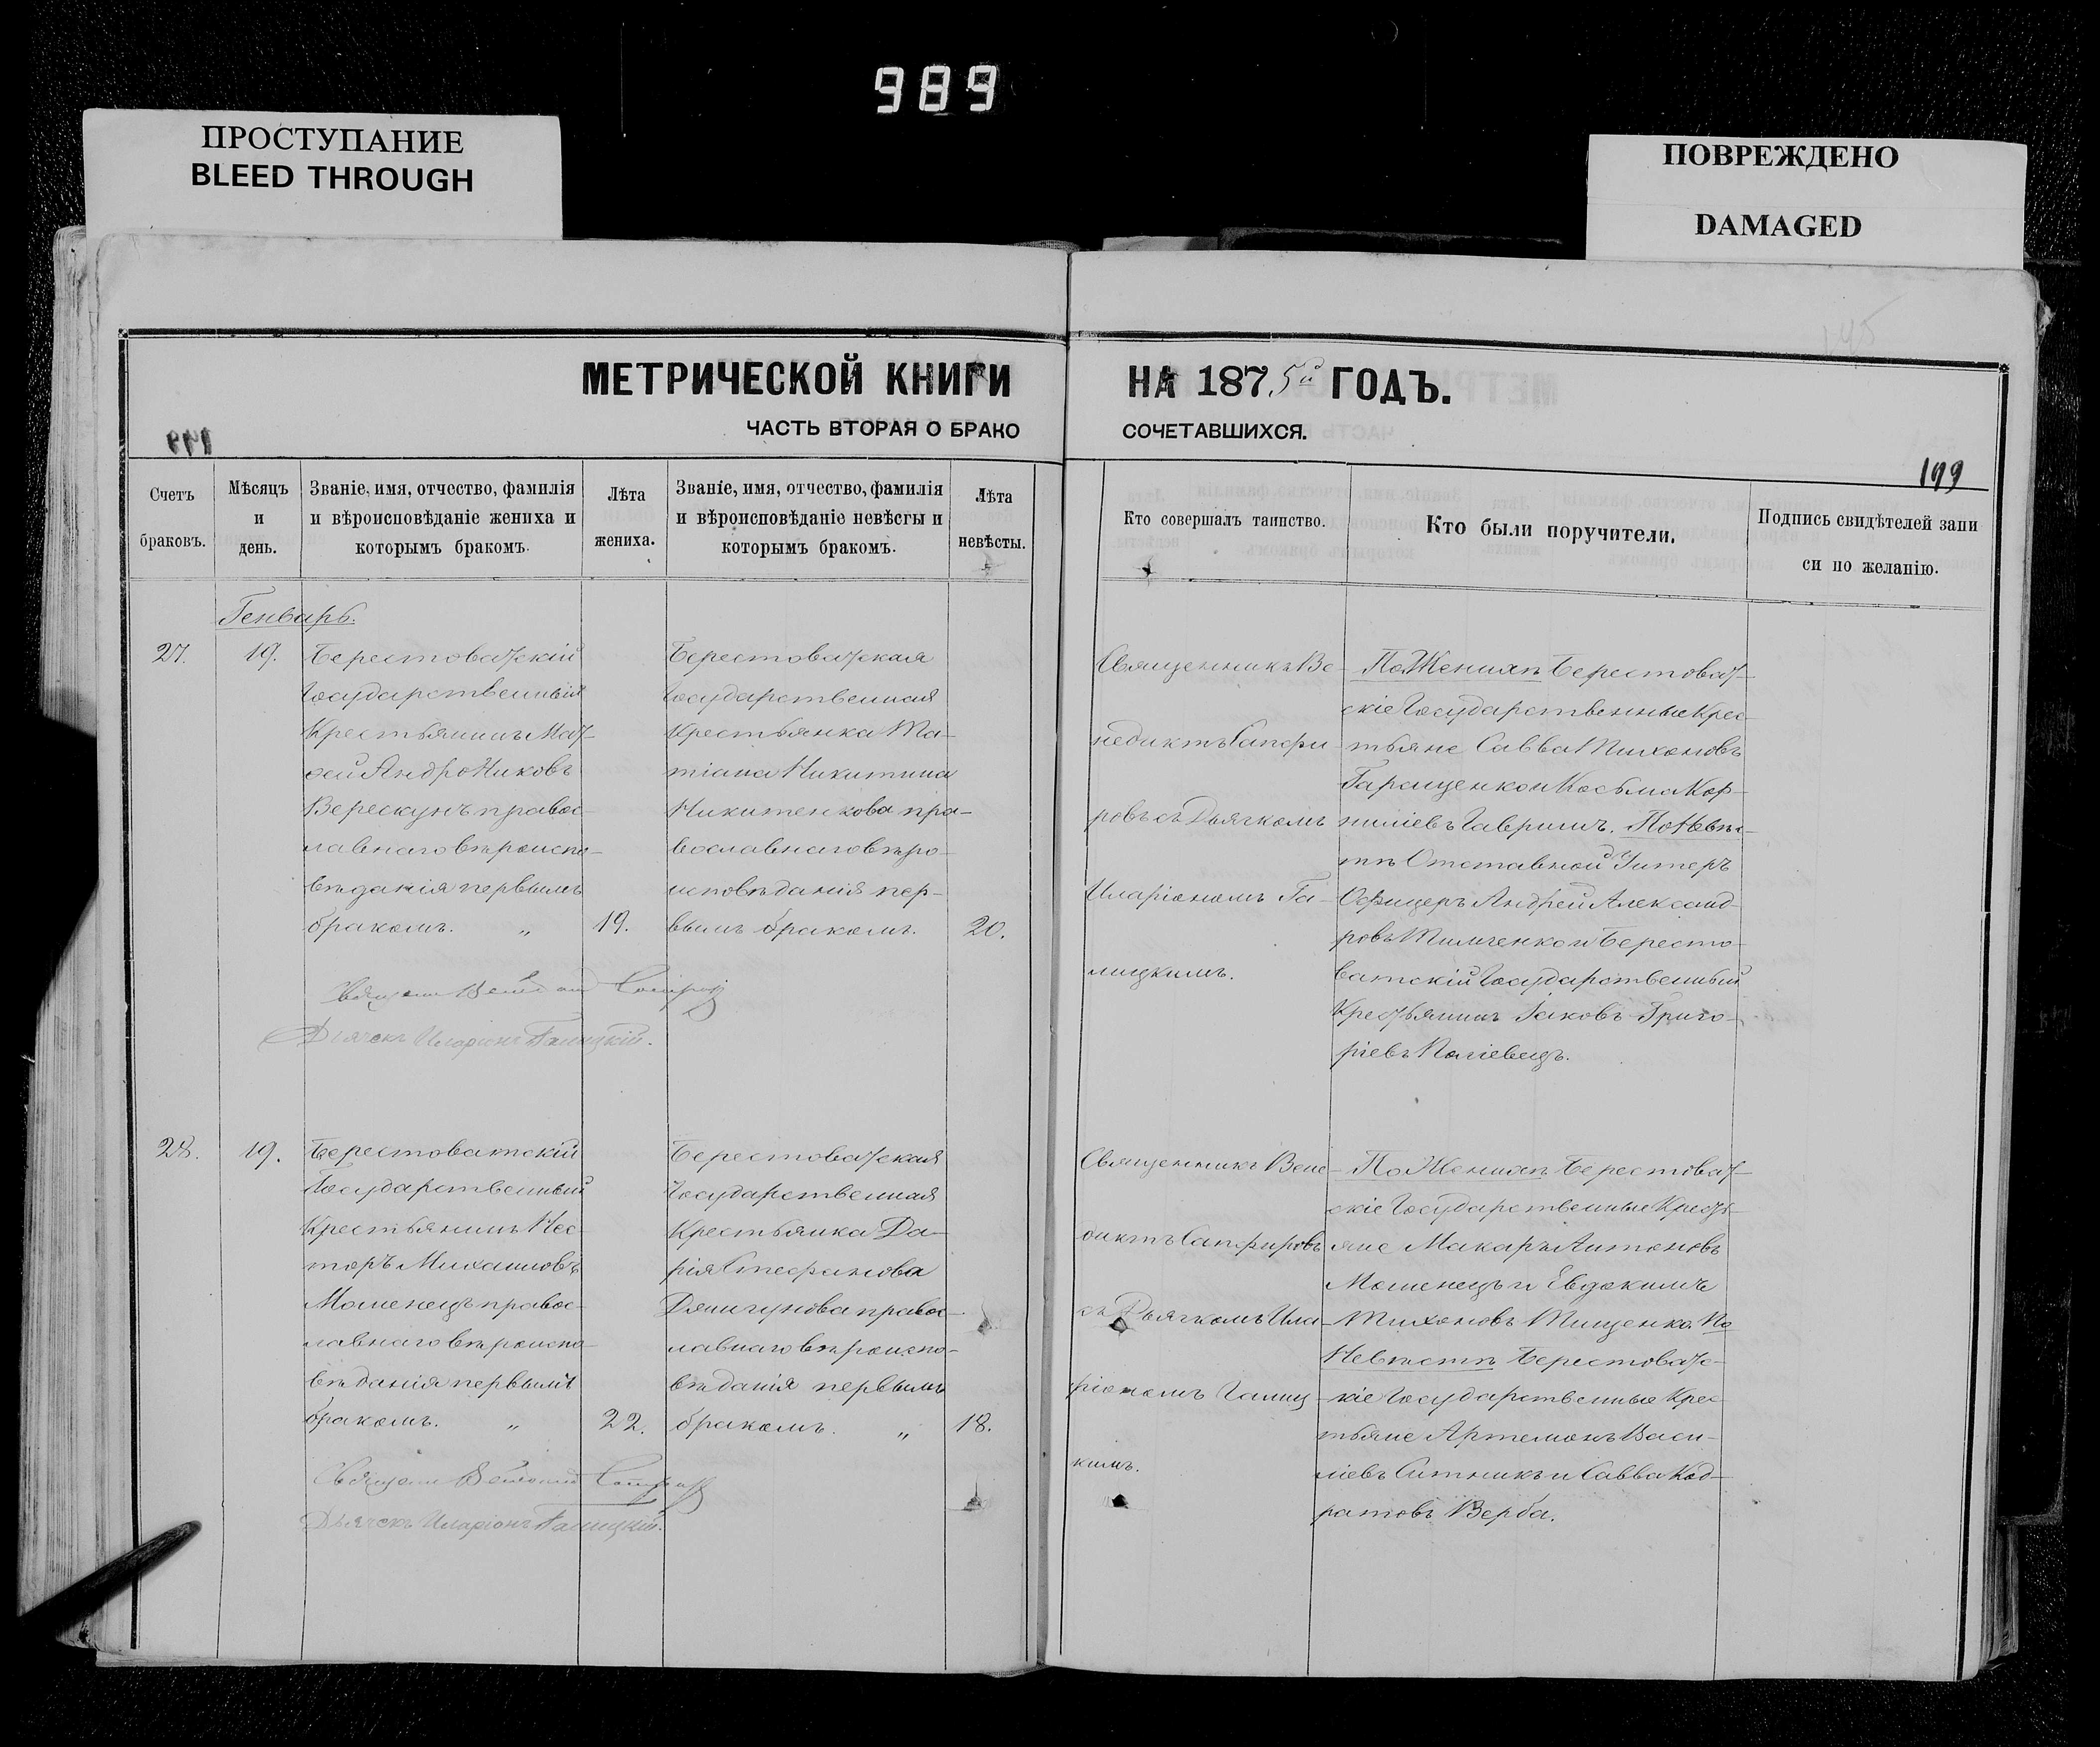 989
ПРОСТУПАНИЕ
BLEED THROUGH
ПОВРЕЖДЕНО
DAMAGED
145
МЕТРИЧЕСКОЙ КНИГИ
НА 1875й ГОДЪ.
ЧАСТЬ ВТОРАЯ О БРАКО
СОЧЕТАВШИХСЯ.
199
Счетъ браковъ.
Мѣсяцъ и день.
Званіе, имя, отчество, фамилія
и вѣроисповѣданіе жениха и
которымъ бракомъ.
Лѣта жениха.
Званіе, имя, отчество, фамилія
и вѣроисповѣданіе невѣсты и
которымъ бракомъ.
Лѣта невѣсты.
Кто совершалъ таинство.
Кто были поручители.
Подпись свидѣтелей запи
си по желанію.
Генварь.
27.
19.
Берестоватскій
Государственный
Крестьянинъ Мат-
фей Андрониковъ
Верескунъ правос-
лавнаго вѣроиспо-
вѣданія первымъ
бракомъ. „
19.
Берестоватская
Государственная
Крестьянка Та-
тіана Никитина
Никитенкова пра-
вославнаго вѣро-
исповѣданія пер-
вымъ бракомъ.
20.
Священникъ Ве-
недиктъ Сапфи-
ровъ съ Дьячкомъ
Иларіономъ Га-
лицкимъ.
По Женихѣ Берестоват-
скіе Государственные Крес-
тьяне Савва Тихоновъ
Таращенко и Косьма Кор-
ниліевъ Гавришъ. По Невѣс-
тѣ Отставной Унтеръ
Офицеръ Андрей Александ-
ровъ Тимченко и Бересто-
ватскій Государственный
Крестьянинъ Іаковъ Григо-
ріевъ Паліевецъ.
Дьячекъ Иларіонъ Галицкій.
28.
19.
Берестоватскій
Государственный
Крестьянинъ Нес-
торъ Михаиловъ
Моменецъ правос-
лавнаго вѣроиспо-
вѣданія первымъ
бракомъ. „
22.
Берестоватская
Государственная
Крестьянка Да-
рія Стефанова
правос-
лавнаго вѣроиспо-
вѣданія первымъ
бракомъ. „
18.
Священникъ Вене-
диктъ Сапфировъ
съ Дьячкомъ Ила-
ріономъ Галиц-
кимъ.
По Женихѣ Берестоват-
скіе Государственные Кресть-
яне Макаръ Антоновъ
Моменецъ и Евдокимъ
Тихоновъ Тищенко. По
Невѣстѣ Берестоватс-
кіе Государственные Крес-
тьяне Артемонъ Васи-
ліевъ Ситникъ и Савва Код-
ратовъ Верба.
Дьячекъ Иларіонъ Галицкій.